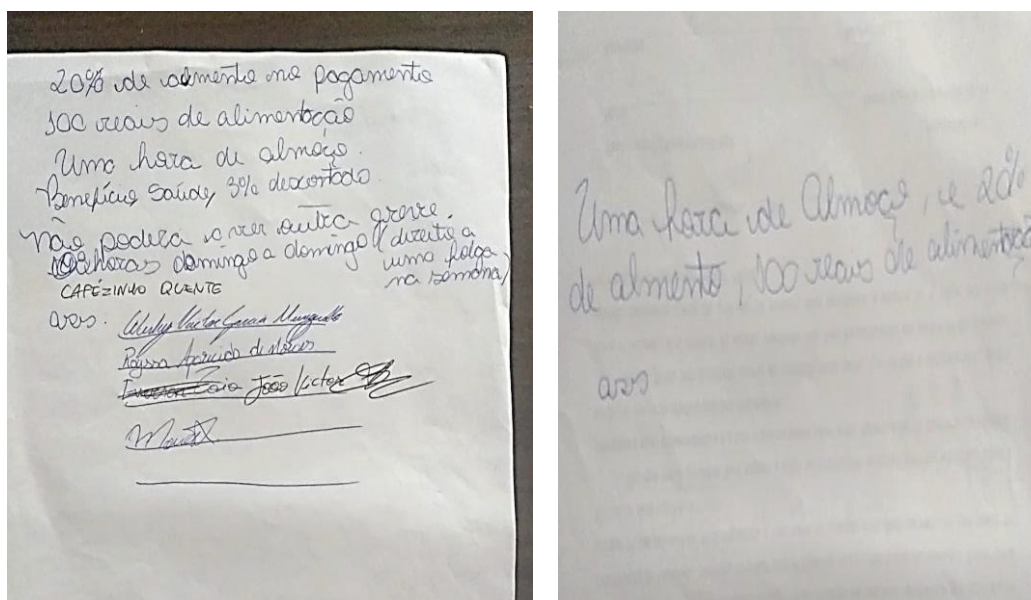 20% de almento no pagamento
100 reais de alimentação
Uma hora de almoço.
Benefício Saúde, 3% descontado.
Não podera a ver outra greve.
horas domingo a domingo (direito a
uma folga
na semana)
CAFÉZINHO QUENTE
ass:
Rayssa Aparecida de
João Victor
Uma hora de Almoço, e 20%
de almento, 100 reais de alimentaçã
ass